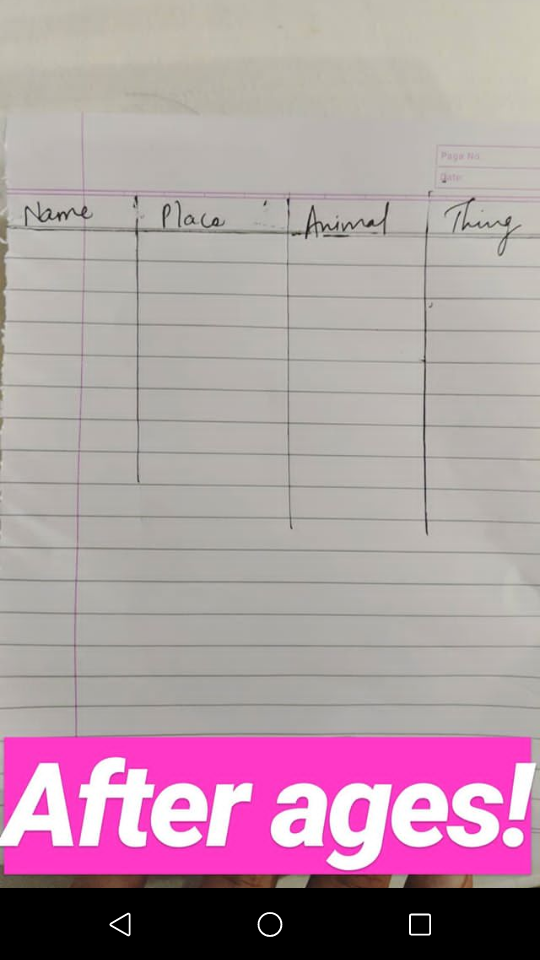 Page No.
Date
Name Place Animal Thing
After ages!